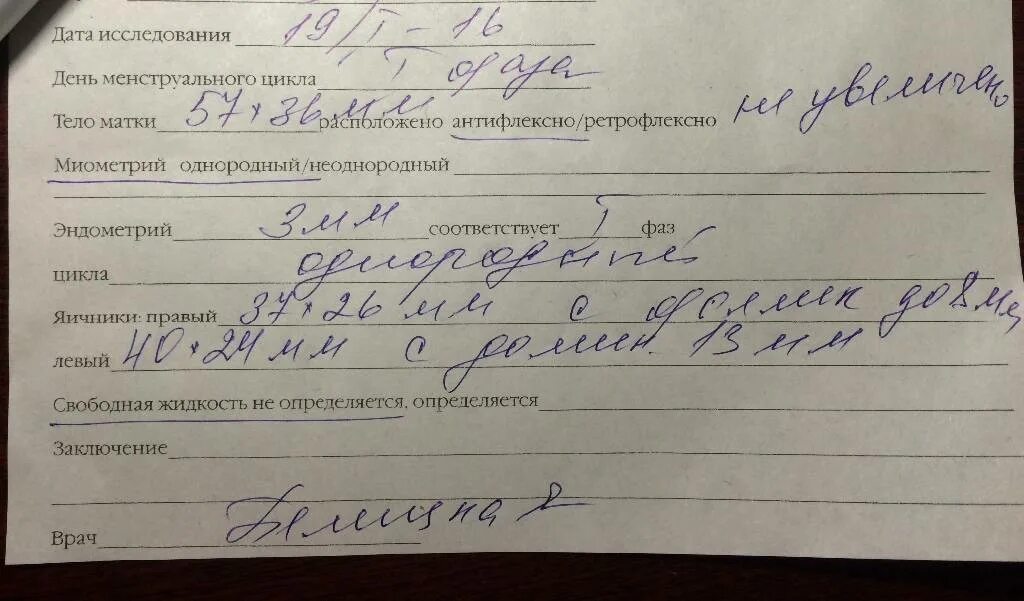 Дата исследования 19/I-16
День менструального цикла I фаза
Тело матки 57*36мм расположено антифлексно/ретрофлексно не увеличено
Миометрий однородный/неоднородный
Эндометрий 3мм соответствует I фаз
цикла однородный
Яичники: правый 37*26 мм с фоллик до 8 мм
левый 40*24 мм с домин. 13 мм
Свободная жидкость не определяется, определяется
Заключение
Врач